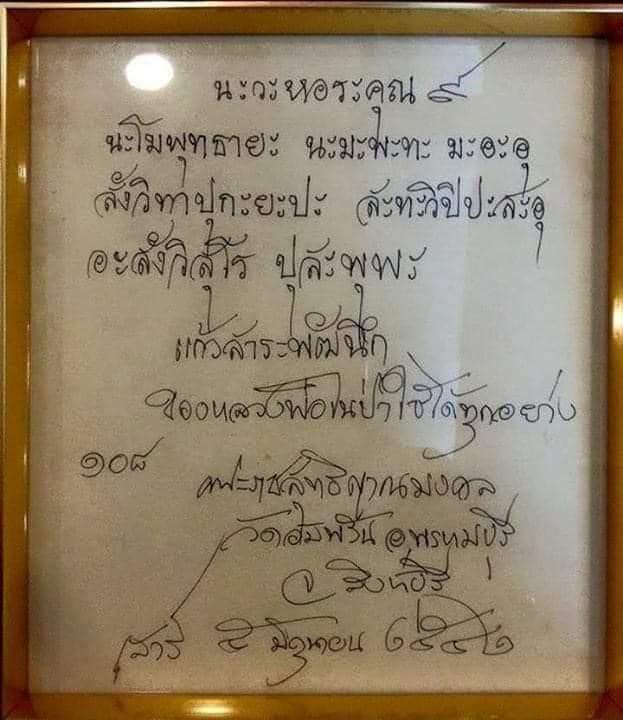 นะวะหอระคุณ ๙
นะโมพุทธายะ นะมะพะทะ มะอะอุ
สังวิทาปุกะยะปะ สะทะวิปิปะสะอุ
อะสังวิสุโร ปุสะพุพะ
แก้วสาระพัฒนึก
ของหลวงพ่อในป่าใช้ได้ทุกอย่าง
๑๐๘ พระราชสุทธิญาณมงคล
วัดอัมพวัน อ.พรหมบุรี
จ. สิงห์บุรี
๕ มิถุนายน